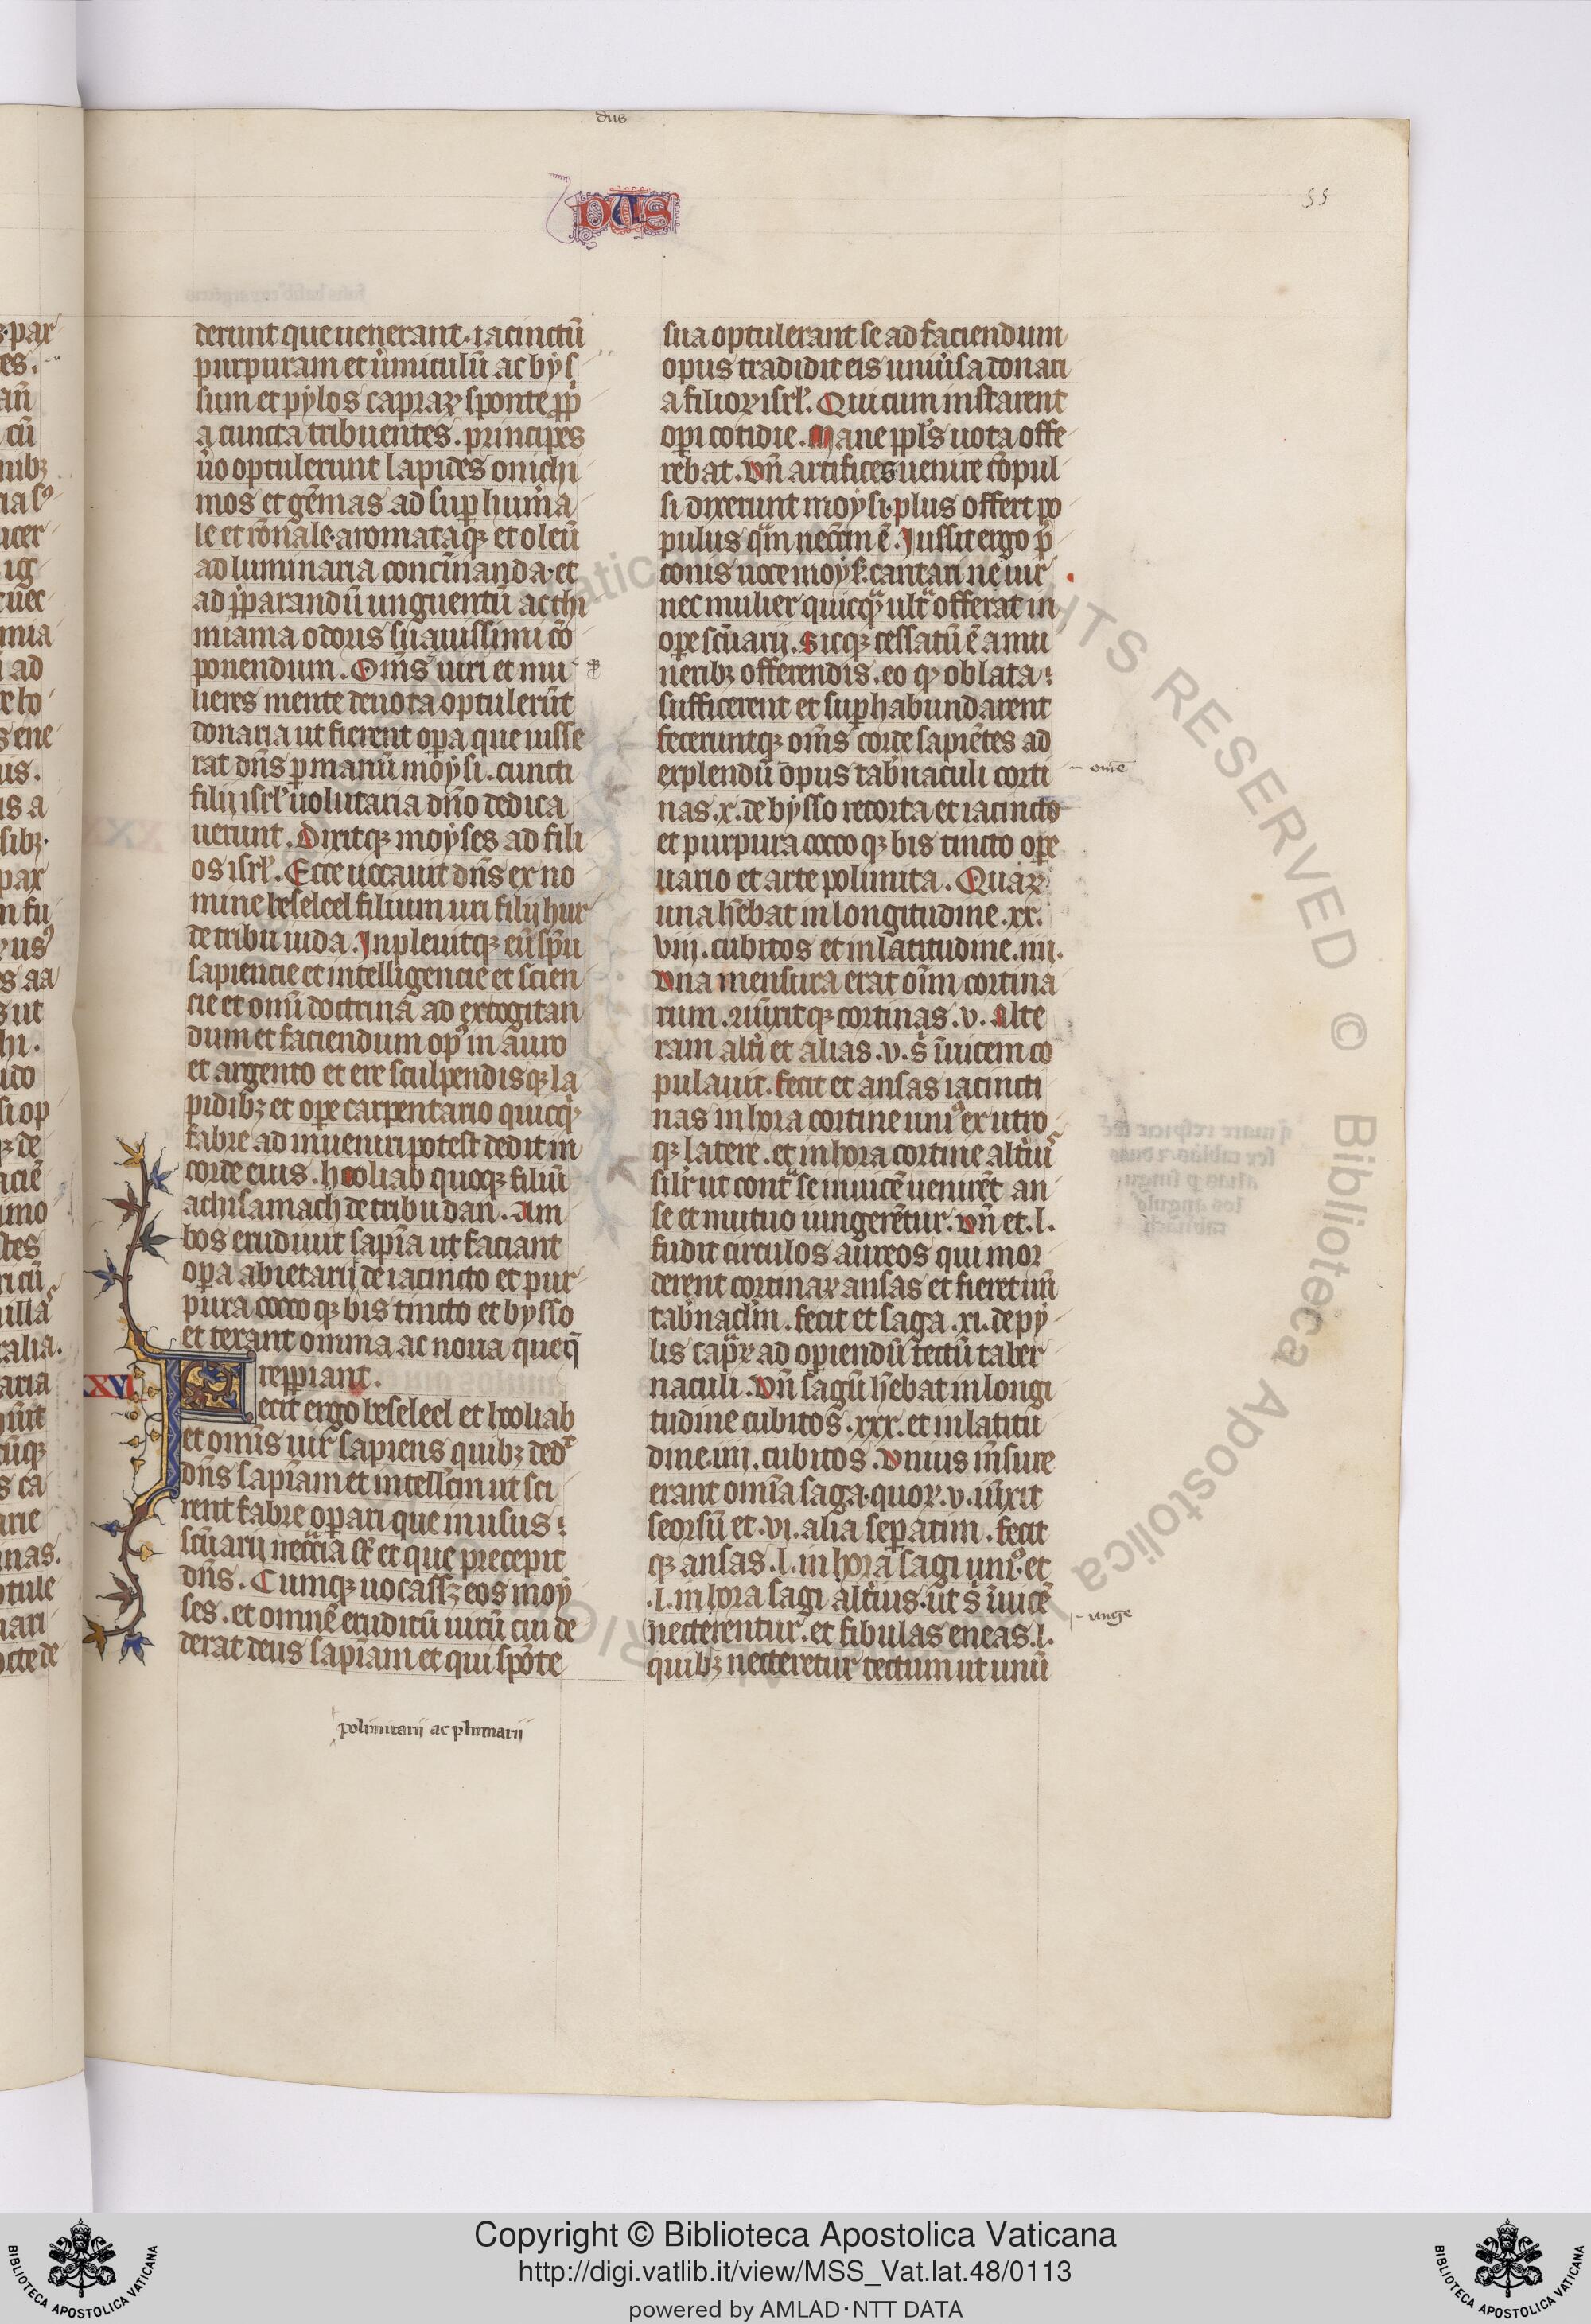 dus
DUS
55
derunt que uenerant. iacinctū
purpuram et ūmiculū ac bys
sum et pylos capraꝝ sponte ꝓp̄
a cuncta tribuentes. principes
ūo optulerunt lapides onichi
nos et gēmas ad suꝑhum̄a
le et rōnale. aromataqꝫ et oleū
ad luminaria concīnanda. et
ad p̄parandū unguentū ac thi
miama odoris suauissimi cō
ponendum. Om̄s uiri et mu
lieres mente deuota optulerūt
donaria ut fierent oꝑa que iusse
rat dn̄s ꝑ manū moysi. cuncti
filij isrl̓ uolūtaria dn̄o dedica
uerunt. Dixitqꝫ moyses ad fili
os isrl̓. Ecce uocauit dn̄s ex no
mine beseleel filium uri filij hur
de tribu iuda. Inpleuitqꝫ eū sp̄u
sapiencie et intelligencie et scien
cie et omni doctrina ad excogitan
dum et faciendum opꝰ in auro
et argento et ere sculpendisqꝫ la
pidibꝫ et oꝑe carpentario quicqͥd
fabre adinueniri potest dedit in
corde eius. hooliab quoqꝫ filiū
achisamach de tribu dan. Am
bos erudiuit sapīa ut faciant
oꝑa abietarij de iacincto et pur
pura coccoqꝫ bis tincto et bysso
et texant omnia ac noua queqꝫ
repꝑiant.
XXXVI
Fecit ergo beseleel et hooliab
et omīs uir sapiens quibꝫ dedͭ
dn̄s sapīam et intellc̄m ut sci
rent fabre oꝑari que in usus
sc̄uarij necc̄ia st̄ et que precepit
dn̄s. Cumqꝫ uocassꝫ eos moy
ses. et omnē eruditū uirū cui de
derat deus sapīam et qui spōte
polimitarij ac plumarij
sua optulerant se ad faciendum
opus tradidit eis uniūsa donari
a filioꝝ isrl̓. Qui cum instarent
oꝑi cotidie. Mane ppl̄s uota offe
rebat. Vn̄ artifices uenire cōpul
si dixerunt moysi. plus offert po
pulus qͣm necc̄m ē. Jussit ergo p̄
conis uoce moys̄. cantari ne uir
nec mulier quicqͣ ultͣ offerat in
oꝑe sc̄uarij. Sicqꝫ cessatū ē a mu
neribꝫ offerendis. eo qꝫ oblata
sufficerent et suꝑhabundarent
feceruntqꝫ om̄s corde sapiētes ad
explendū opus tab̄naculi corti
ome
nas .x. de bysso retorta et iacincto
et purpura coccoqꝫ bis tincto oꝑe
uario et arte polimita. Quaꝝ
una hēbat in longitudine .xx.
viij. cubitos et in latitudine .iiij.
Vna mensura erat oīm cortina
rum. iūxitqꝫ cortinas .v. alte
ram alt̄i et alias .v. s̄ īuicem co
pulauit. fecit et ansas iacincti
nas in hora cortine uniꝰ ex utro
qꝫ latere. et in hora cortine alt̄iuˢ
silr̄ ut contͣ se inuicē uenirēt an
se et mutuo iungerētur. Vn̄ et .l.
fudit circulos aureos qui mor
derent cortinaꝝ ansas et fieret un̄
tab̄nacl̄m. fecit et saga .xi. de py
lis capͣꝝ ad oꝑiendū tectū taber
naculi. Vn̄ sagū hēbat in longi
tudine cubitos .xxx. et in latitu
dine .iiij. cubitos. Vnius m̄sure
erant omīa saga. quoꝝ .v. iūxit
seorsū et .vj. alia seꝑatim. fecit
qꝫ ansas .l. in hora sagi uniꝰ. et
.l. in hora sagi alt̄ius. ut s̄ īuicē
iunge
necterentur. et fibulas eneas .l.
quibꝫ necteretur tectum ut unū
Copyright © Biblioteca Apostolica Vaticana
http://digi.vatlib.it/view/MSS_Vat.lat.48/0113
powered by AMLAD·NTT DATA
BIBLIOTECA APOSTOLICA VATICANA
BIBLIOTECA APOSTOLICA VATICANA